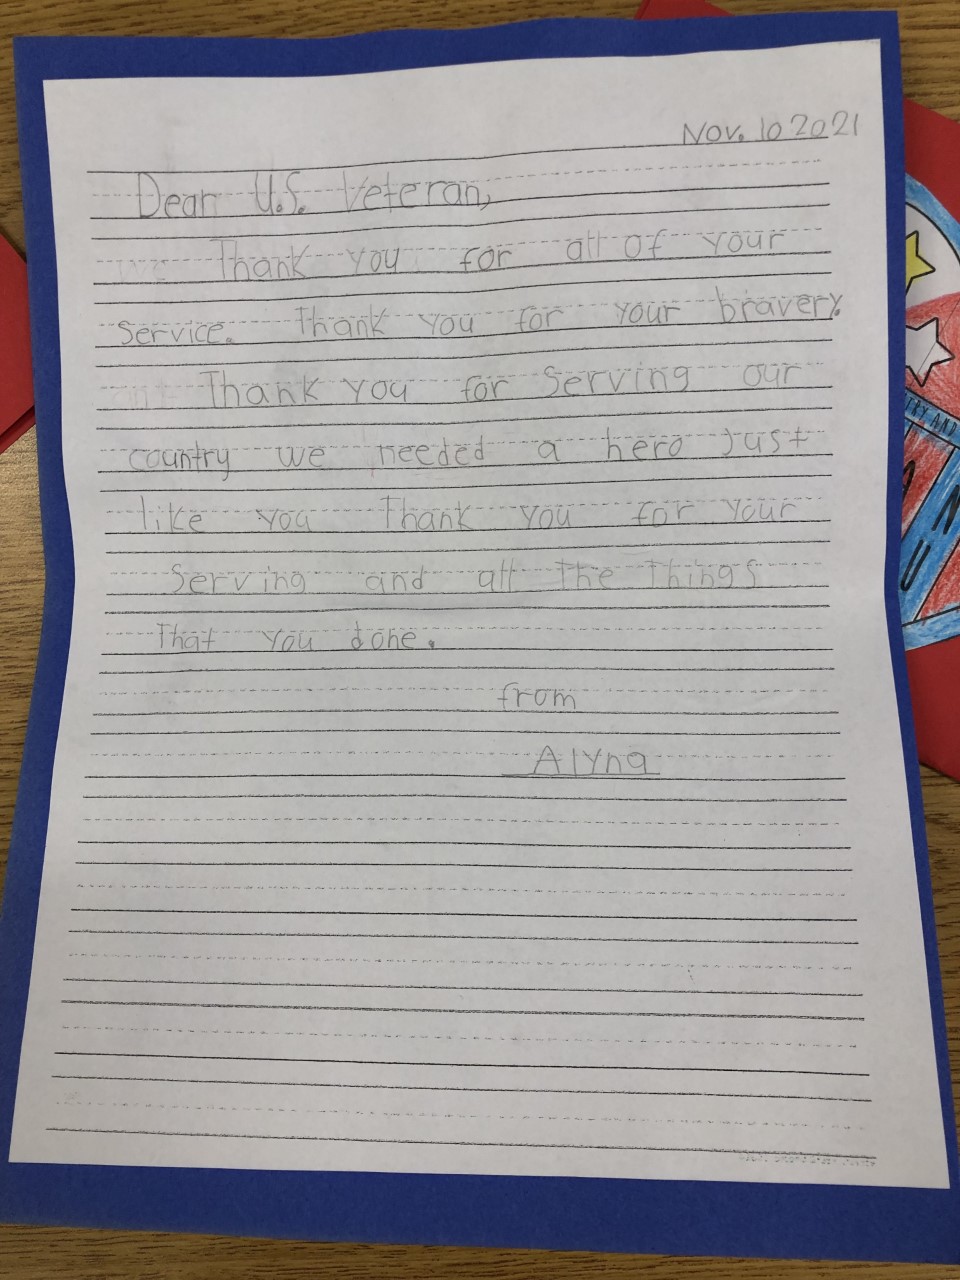 Nov. 10 2021
Dear U.S. Veteran,
Thank you for all of your
Service. Thank you for your bravery.
Thank you for Serving our
country we needed a hero Just
like you Thank you for your
Serving and all the things
That you done.
from
Alyna
TRY AND
A N
U